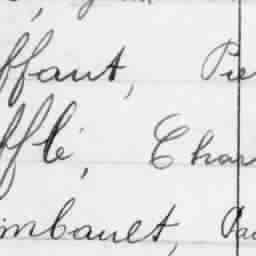 ffaut, Pie
fflé, Char
mbault, Pau